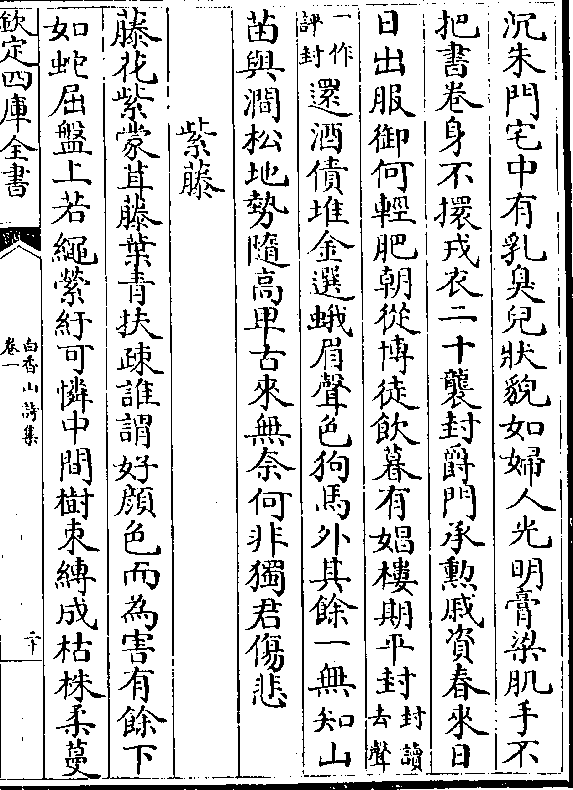 沉朱門宅中有乳臭兒狀貌如婦人光明膏粱肌手不
把書卷身不擐戎衣二十襲封爵門承勲戚資春來日
日出服御何輕肥朝從博徒飲暮有娼樓期平封封讀去聲
一作評封還酒債堆金選蛾眉聲色狗馬外其餘一無知山
苗與澗松地勢隨高卑古來無奈何非獨君傷悲
紫藤
藤花紫蒙茸藤葉青扶疎誰謂好顔色而為害有餘下
如蛇屈盤上若繩縈紆可憐中間樹束縛成枯株柔蔓
欽定四庫全書
白香山詩集
卷一
二十